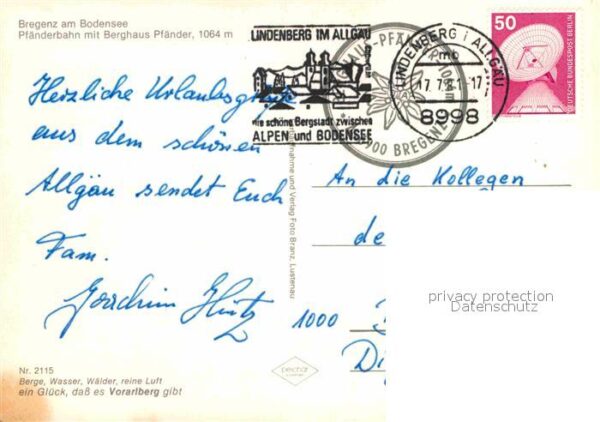 Bregenz am Bodensee
Pfänderbahn mit Berghaus Pfänder, 1064 m
Herzliche Urlaubsgrüße
aus dem schönen
Allgäu sendet Euch
Fam.
Joachim
Nr. 2115
Berge, Wasser, Wälder, reine Luft
ein Glück, daß es Vorarlberg gibt
Aufnahme und Verlag Foto Branz, Lustenau
LINDENBERG IM ALLGÄU
die schöne Bergstadt zwischen
ALPEN und BODENSEE
BREGENZ
LINDENBERG i ALLGÄU
mb
8998
50
DEUTSCHE BUNDESPOST BERLIN
An die Kollegen
de
1000
privacy protection
Datenschutz